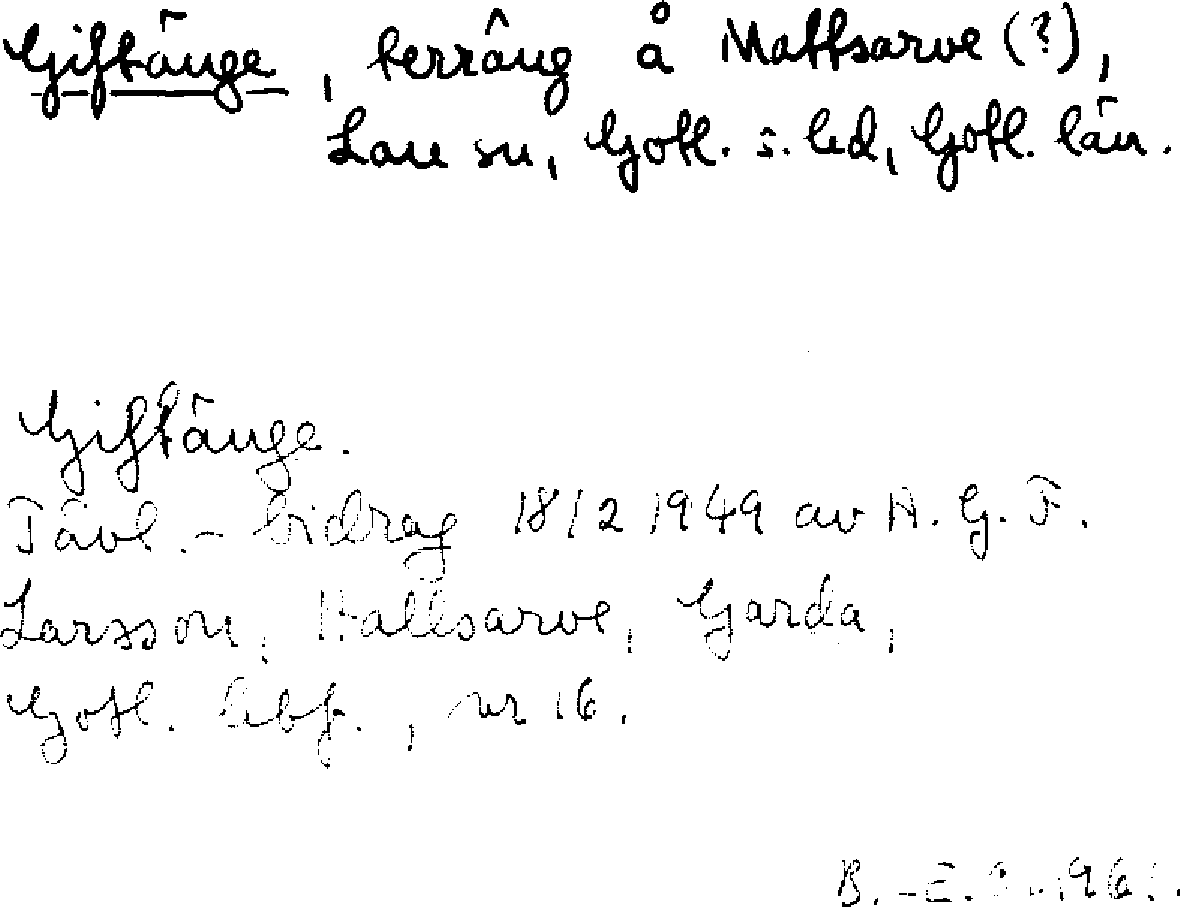 Giftänge, terräng å Mattsarve (?),
Lau sn, Gotl. s. hd, Gotl. län.
Giftänge.
Tävl.-bidrag 18/2 1949 av A. G. F.
Larsson, Hallsarve, Garda,
Gotl. nr 16.
B.-E.